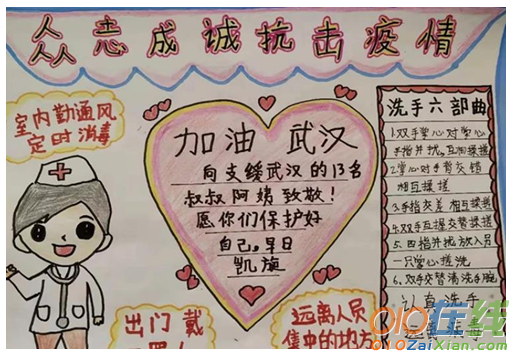 众志成诚抗击疫情
室内勤通风
定时消毒
加油 武汉
向支缓武汉的13名
叔叔阿姨致敬!
愿你们保护好
自己,早日
凯旋
洗手六部曲
1.双手掌心对掌心
手指并拢,互相揉搓
2.掌心对手背交错
相互揉搓
3.手指交差 相互揉搓
4.双手互握交替揉搓
5.四指并拢放入另
一只掌心搓洗
6.双手交替清洗手腕
认真洗手
远离病毒
出门 戴
远离人员
集中的地方
010在线
010ZaiXian.Com